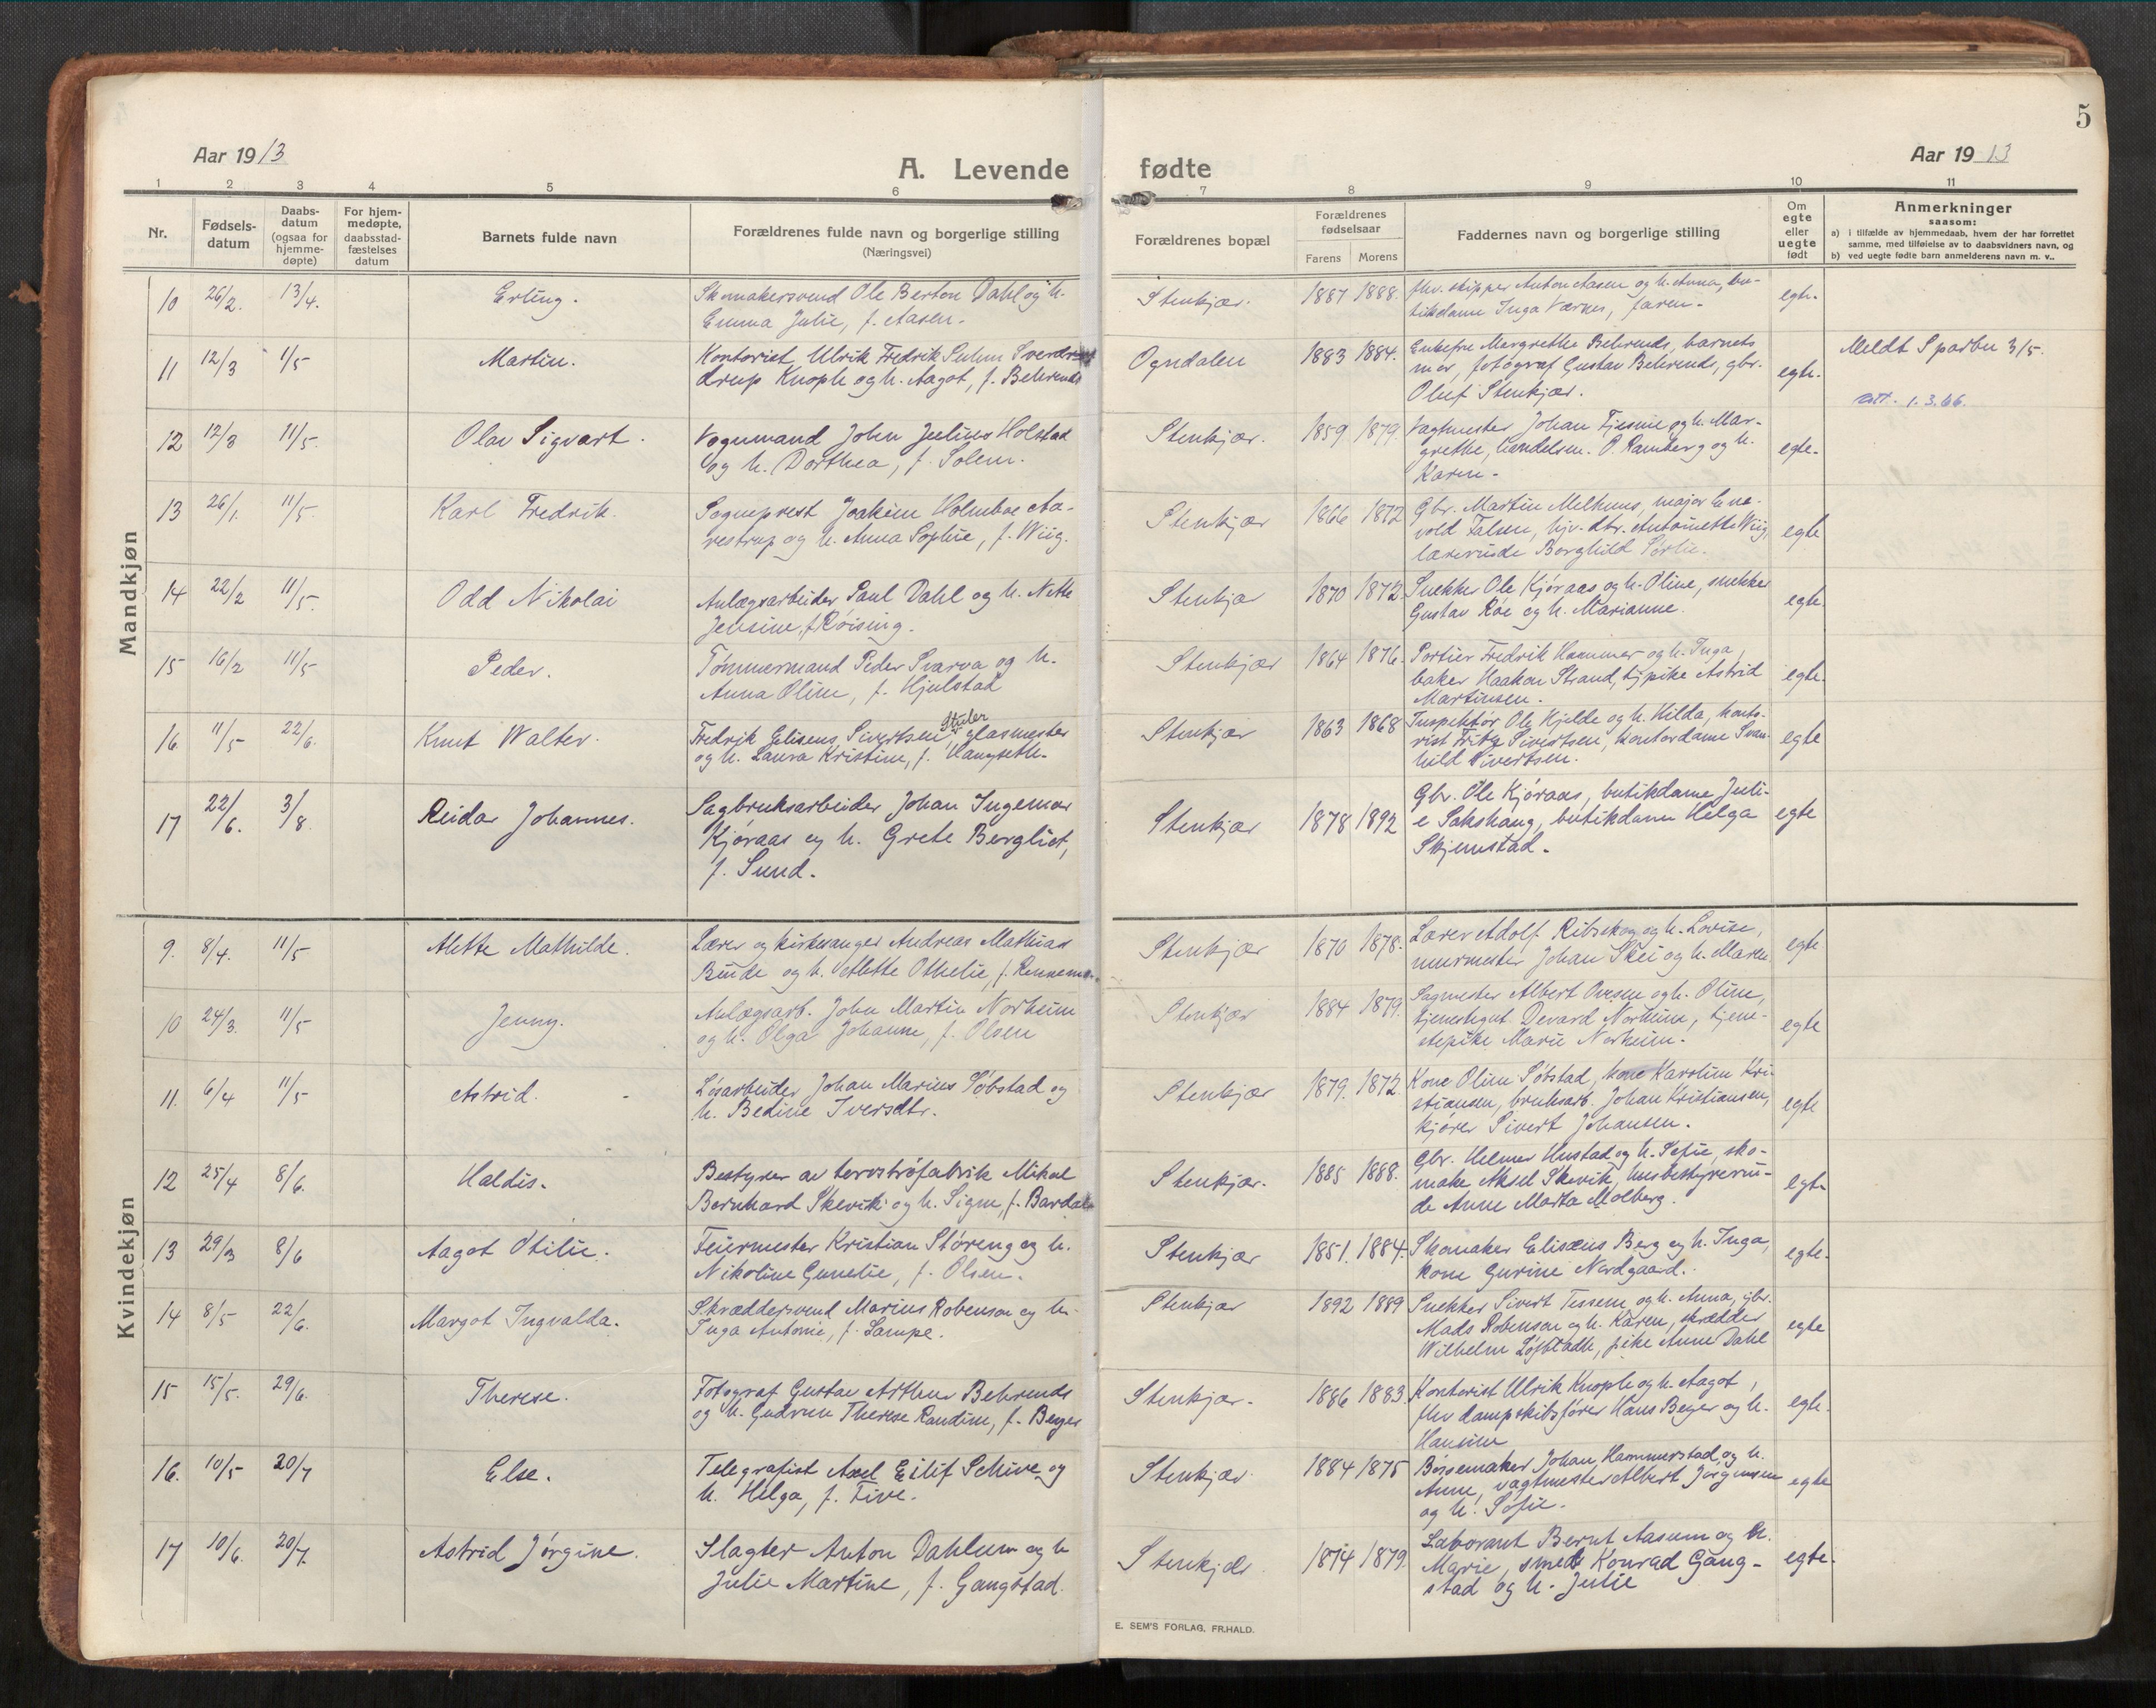 5
Aar 1913
A. Levende fødte
Aar 1913
1 2 3 4 5 6 7 8 9 10 11
Nr.
Fødsels-
datum
Daabs-
datum
(ogsaa for
hjemme-
døpte)
For hjem-
medøpte,
daabsstad-
fæstelses
datum
Barnets fulde navn
Forældrenes fulde navn og borgerlige stilling
(Næringsvei)
Forældrenes bopæl
Forældrenes
fødselsaar
Farens Morens
Faddernes navn og borgerlige stilling
Om
egte
eller
uegte
født
Anmerkninger
saasom:
a) i tilfælde av hjemmedaab, hvem der har forrettet
samme, med tilføielse av to daabsvidners navn, og
b) ved uegte fødte barn anmelderens navn m. v..
Mandkjøn
10 26/2. 13/4. Erling.
Skomakersvend Ole Berton Dahl og h.
Emma Julie, f. Aasen.
Stenkjær. 1887 1888.
fhv. skipper Anton Aasen og h. Anna, bu-
tikdame Inga Værnes, faren.
egte.
11 12/3 1/5 Martin.
Kontorist Ulrik Fredrik Suhm Sverd
drup Knoph og h. Aagot, f. Behrends
Ogndalen 1883 1884.
Enkefru Margrethe Behrends, barnets
mor, fotograf Gustav Behrends, gbr.
Oluf Stenkjær.
egte.
Meldt Sparbu 3/5.
att. 1.3.66.
12 12/3 11/5. Olav Sigvart.
Vognmand John Julius Holstad
og h. Dorthea, f. Solem.
Stenkjær. 1859 1879.
Vagtmester Johan Tjesme og h. Mar-
grethe, O. Ramberg og h.
Karen.
egte.
13 26/1. 11/5. Karl Fredrik.
Sogneprest Joakim Holmboe Aa-
restrup og h. Anna Sophie, f. Wiig.
Stenkjær 1866 1872
Gbr. Martin Melhuus, major Ene-
vold Falsen, hjv. dtr. Antoinette Wiig,
lærerinde Borghild
egte
14 22/2 11/5. Odd Nikolai
Anlægsarbeider Paul Dahl og h. Nette
Jensine, f. Røising.
Stenkjær 1870 1872.
Snekker Ole Kjøraas og h. Oline, snekker
Gustav Roe og h. Marianne.
egte.
15 16/2 11/5 Peder.
Tømmermand Peder Svarva og h.
Anna Oline, f. Hjulstad
Stenkjær 1864 1876.
Portier Fredrik Hammer og h. Inga,
baker Haakon Strand, tjpike Astrid
Martinsen.
egte.
16. 11/5 22/6. Knut Walter.
Fredrik Eliseus Sivertsen Stuler, glasmester
og h. Laura Kristine, f. Hangseth.
Stenkjær 1863 1868
Inspektør Ole Kjelde og h. Hilda, konto-
rist Fritz Sivertsen, kontordame Svan-
hild Sivertsen.
egte
17 22/6. 3/8. Reidar Johannes.
Sagbruksarbeider Johan Ingemar
Kjøraas og h. Grete Bergliot,
f. Sund.
Stenkjær 1878 1892
Gbr. Ole Kjøraas, butikdame Juli-
e Sakshaug, butikdame Helga
Skjemstad.
egte
Kvindekjøn
9. 8/4. 11/5 Alette Mathilde.
Lærer og kirkesanger Andreas Mathias
Binde og h. Alette Othelie, f. Rennemo.
Stenkjær 1870 1878.
Lærer Adolf Ribskog og h. Lovise,
murmester Johan Skei og h. Maren
egte
10 24/3. 11/5 Jenny.
Anlægsarb. John Martin Norheim
og h. Olga Johanne, f. Olsen
Stenkjær 1884 1879.
Sagmester Albert Ovesen og h. Oline,
tjenestegut Devard Norheim, tjene-
stepike Marie Norheim.
egte
11. 6/4 11/5 Astrid.
Løsarbeider Johan Marius Søbstad og
h. Bedine Iversdtr.
Stenkjær 1879. 1872.
Kone Oline Søbstad, kone Karoline Kri-
stiansen, bruksarb. Johan Kristiansen,
kjører Sivert Johansen.
egte
12 25/4 8/6. Haldis.
Bestyrer av torvstrøfabrik Mikal
Bernhard Skevik og h. Signe, f. Bardal
Stenkjær. 1885 1888.
Gbr. Helmer Hustad og h. Sofie, sko-
make Aksel Skevik, husbestyrerin-
de Anne Marta Molberg.
egte
13 29/3 8/6 Aagot Otilie.
Feiermester Kristian Støreng og h.
Nikoline Gunelie, f. Olsen.
Stenkjær 1851. 1884.
Skomaker Elisæus Berg og h. Inga,
kone Gurine Nordgaard.
egte.
14 8/5 22/6. Margot Ingvalda.
Skræddersvend Marius Robenson og h.
Inga Antonie, f. Lampe.
Stenkjær 1892 1889
Snekker Sivert Tessem og h. Anna, gbr.
Mads Robenson og h. Karen, skrædder
Wilhelm , pike Anne Dahl
egte
15 15/5. 29/6. Therese.
Fotograf Gustav Arthur Behrends
og h. Gudrun Therese Randine, f. Beyer
Stenkjær. 1886 1883.
Kontorist Ulrik Knoph og h. Aagot,
fhv dampskibsfører Hans Beyer og h.
Hansine
egte.
16. 10/5 20/7 Else.
Telegrafist Axel Eilif Schive og
h. Helga, f. Five.
Stenkjær. 1884 1875
Børsemaker Johan Hammerstad og h.
Anne, vagtmester Albert Jørgensen
og h. Sofie.
egte
17 10/6. 20/7. Astrid Jørgine.
Slagter Anton Dahlum og h
Julie Martine, f. Gangstad.
Stenkjær. 1874 1879.
Laborant Bernt Aasum og h.
Marie, smed Konrad Gang-
stad og h. Julie
egte.
E. SEM'S FORLAG, FR.HALD.